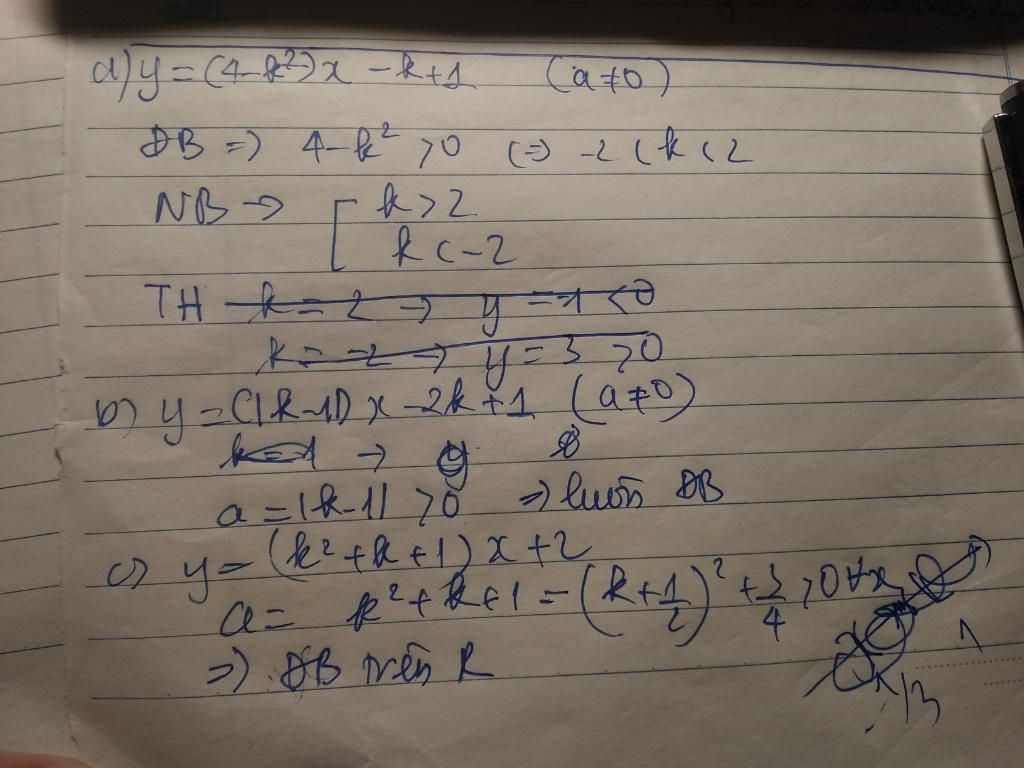 a) y = (4-k²)x - k+1 (a≠0)
ĐB => 4-k² >0 <=> -2 < k < 2
NB -> [ k > 2
k < -2
TH k = 2 -> y = -1 < 0
k = -2 -> y = 3 > 0
b) y = (|k-1|)x - 2k+1 (a≠0)
k=1 -> y
a = |k-1| >0 => luôn ĐB
c) y = (k²+k+1)x+2
a = k²+k+1 = (k+1/2)² + 3/4 >0 ∀x
=> ĐB trên R